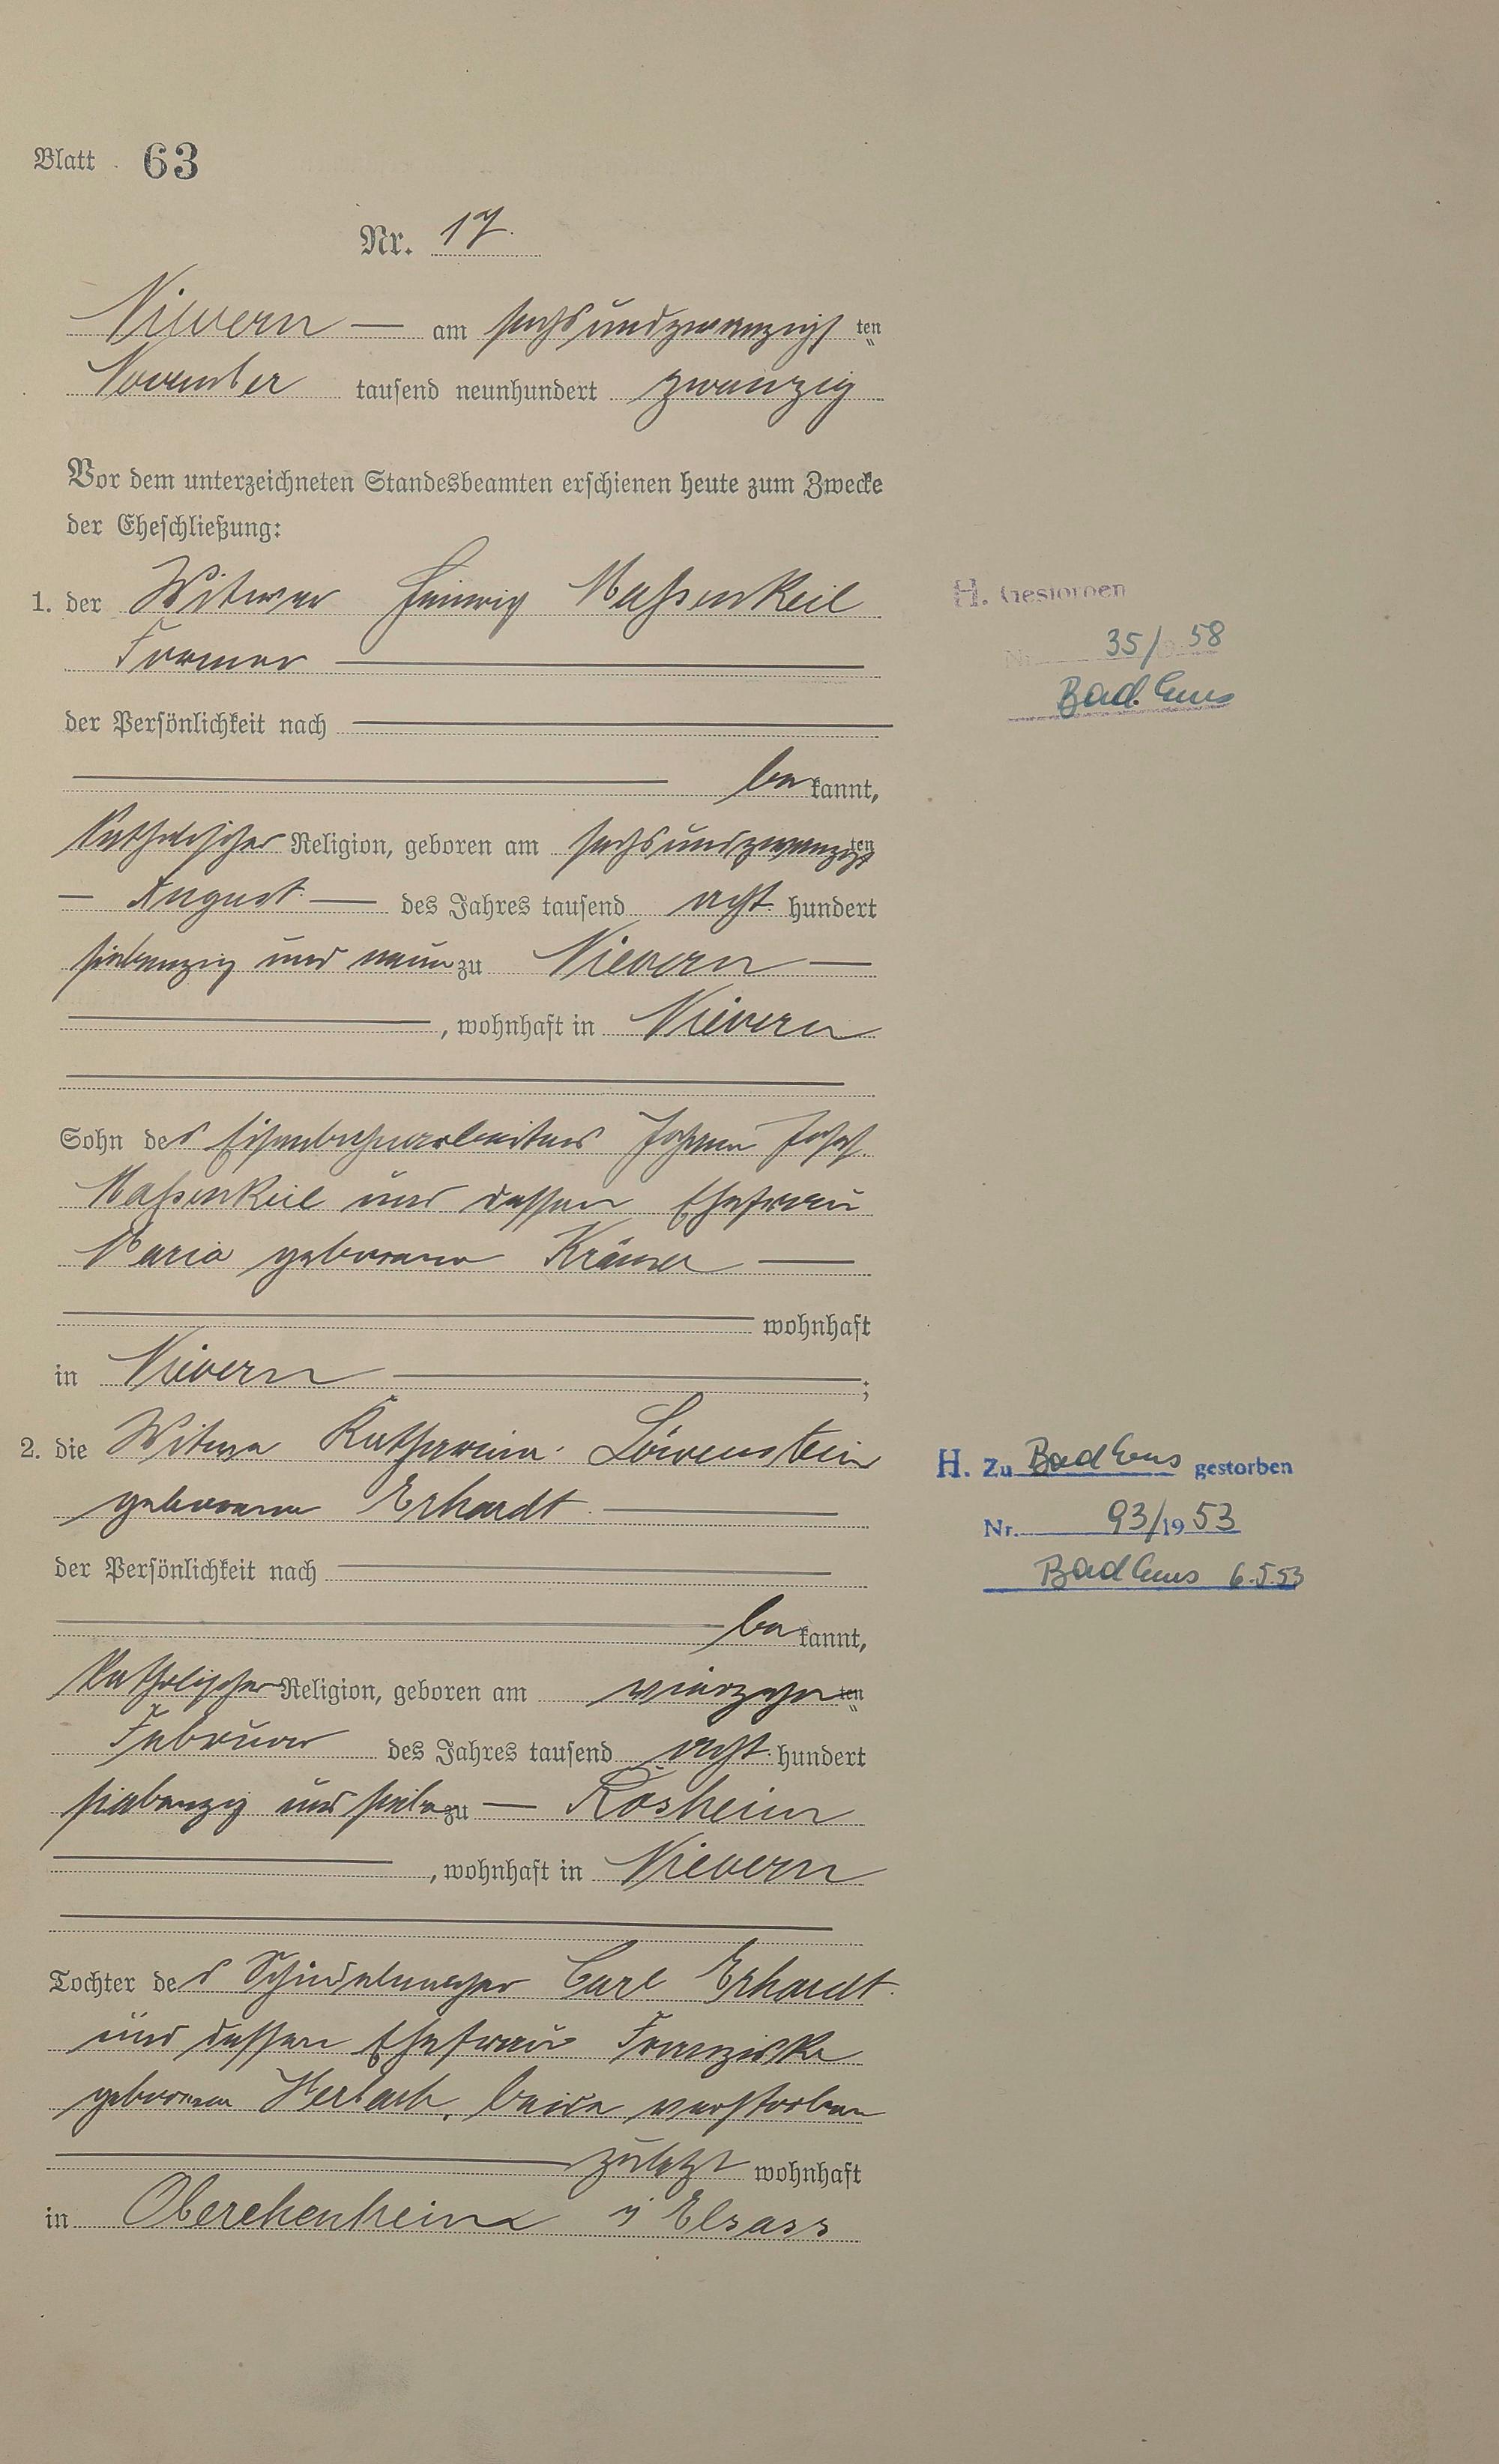 Blatt 63
Nr. 17.
Nievern — am sechsundzwanzigsten
November tausend neunhundert zwanzig
Vor dem unterzeichneten Standesbeamten erschienen heute zum Zwecke
der Eheschließung:
1. der Witwer Heinrich Massenkeil
Former
der Persönlichkeit nach
bekannt,
katholischer Religion, geboren am sechsundzwanzigsten
— August — des Jahres tausend acht hundert
siebenzig und neun zu Nievern —
, wohnhaft in Nievern
Sohn des Eisenbahnarbeiters Johann Josef
Massenkeil und dessen Ehefrau
Maria geborene Krämer —
wohnhaft
in Nievern ;
2. die Witwe Katharina Löwenstein
geborene Erhardt
der Persönlichkeit nach
bekannt,
katholischer Religion, geboren am vierzehnten
Februar des Jahres tausend acht hundert
siebenzig und sieben zu — Rosheim
, wohnhaft in Nievern
Tochter des Schindelmacher Carl Erhardt
und dessen Ehefrau Franziska
geborene beide verstorben
zuletzt wohnhaft
in Oberehenheim i/ Elsass
H. Gestorben
Nr. 35/ 58
Bad Ems
H. Zu Bad Ems gestorben
Nr. 93/1953
Bad Ems 6.5.53